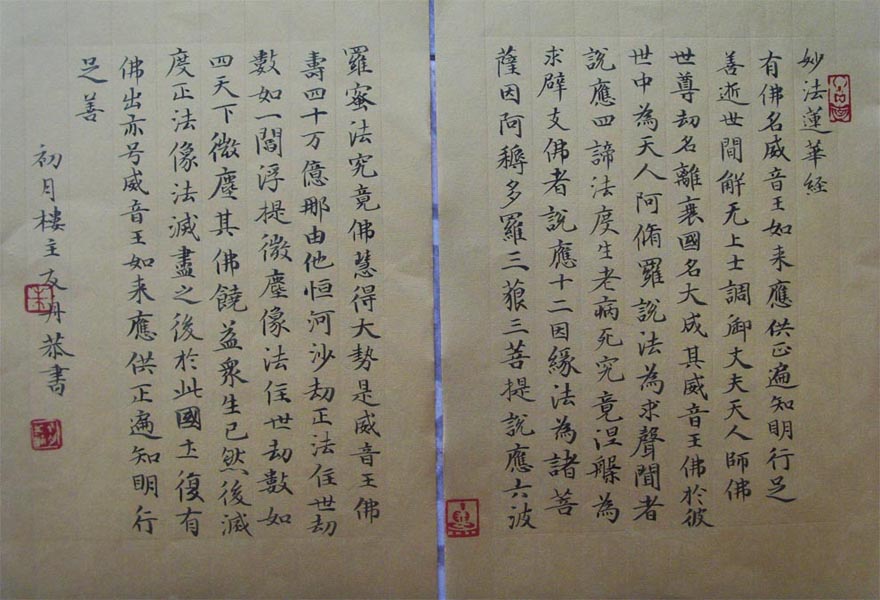 妙法蓮華経
有佛名威音王如来應供正遍知明行足
善逝世間解无上士調御丈夫天人師佛
世尊劫名離衰國名大成其威音王佛於彼
世中為天人阿脩羅說法為求聲聞者
說應四諦法度生老病死究竟涅槃為
求辟支佛者說應十二因緣法為諸菩
薩因阿耨多羅三藐三菩提說應六波
羅蜜法究竟佛慧得大勢是威音王佛
壽四十万億那由他恒河沙劫正法住世劫
數如一閻浮提微塵像法住世劫數如
四天下微塵其佛饒益衆生已然後滅
度正法像法滅盡之後於此國土復有
佛出亦号威音王如来應供正遍知明行
足善
初月樓主友丹恭書